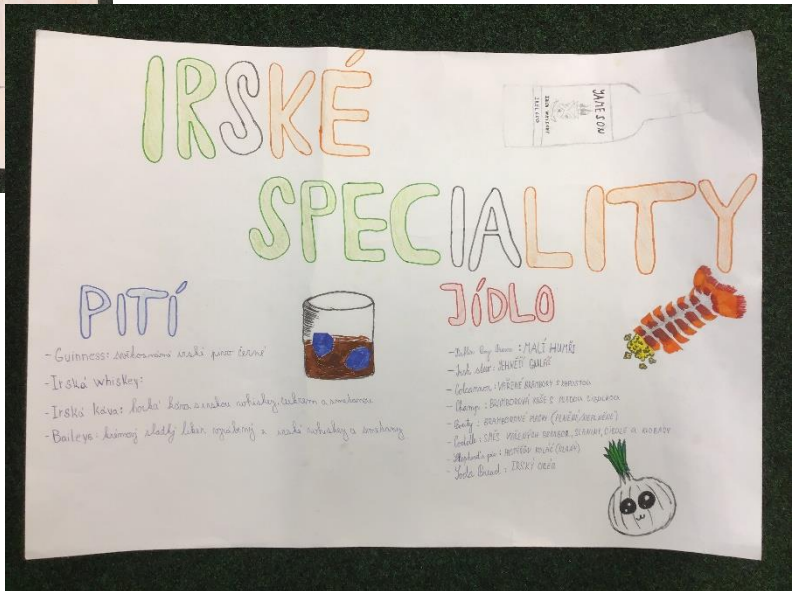 IRSKÉ
JAMESON
IRISH WHISKEY
IRELAND
SPECIALITY
PITÍ
- Guinness: světoznámé irské pivo černé
- Irská whiskey:
- Irská káva: horká káva s irskou whiskey, cukrem a smetanou
- Baileys: krémový sladký likér vyrobený z irské whiskey a smetany
JÍDLO
- Dublin Bay : MALÍ HUMŘI
- Irish stew: JEHNĚČÍ GULÁŠ
- Colcannon: VAŘENÉ BRAMBORY S KAPUSTOU
- Champ: BRAMBOROVÁ KAŠE S CIBULKOU
- Boxty: BRAMBOROVÉ PLACKY
- Coddle: SMĚS VAŘENÝCH BRAMBOR, SLANINY, CIBULE A KLOBÁSY
- Shepherd's pie: PASTÝŘSKÝ KOLÁČ
- Soda Bread: IRSKÝ CHLÉB